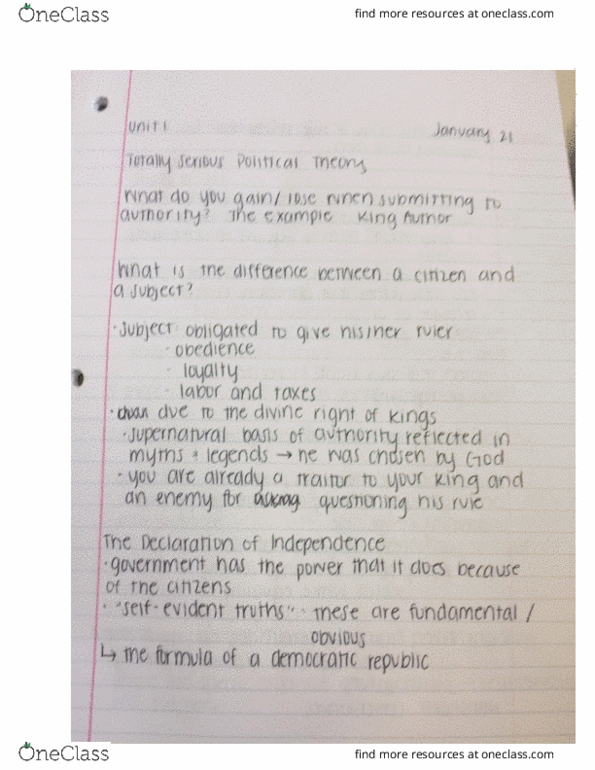 OneClass find more resources at oneclass.com
unit 1 January 21
Totally Serious Political Theory
What do you gain/lose when submitting to
authority? The example King Author
What is the difference between a citizen and
a subject?
·Subject: obligated to give his/her ruler
· obedience
· loyalty
· labor and taxes
· due to the divine right of kings
·supernatural basis of authority reflected in
myths + legends → he was chosen by God
·you are already a traitor to your king and
an enemy for questioning his rule
The Declaration of Independence
·government has the power that it does because
of the citizens
· "self-evident truths" · these are fundamental /
obvious
↳ the formula of a democratic republic
OneClass find more resources at oneclass.com